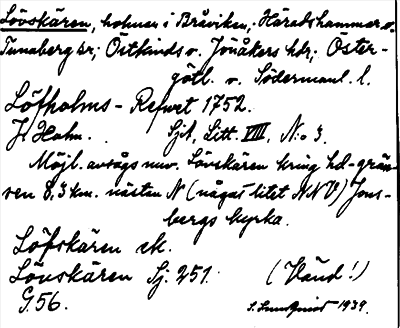 Lövskären, holmar i Bråviken, Häradshammar o.
Tunaberg sr; Östkinds o. Jönåkers hdr; Öster-
götl. o. Södermanl. l.
Löfholms-Refwet 1752.
J. Hahn. Sjk, Litt. VIII, N:o 3.
Möjl. avsågs nuv. Lövskären kring hd-grän-
sen 8,3 km. nästan N (något litet NNV) Jons-
bergs kyrka.
Löfskären ek.
Lövskären Sj. 251. (Vänd!)
G. 56. 1939.